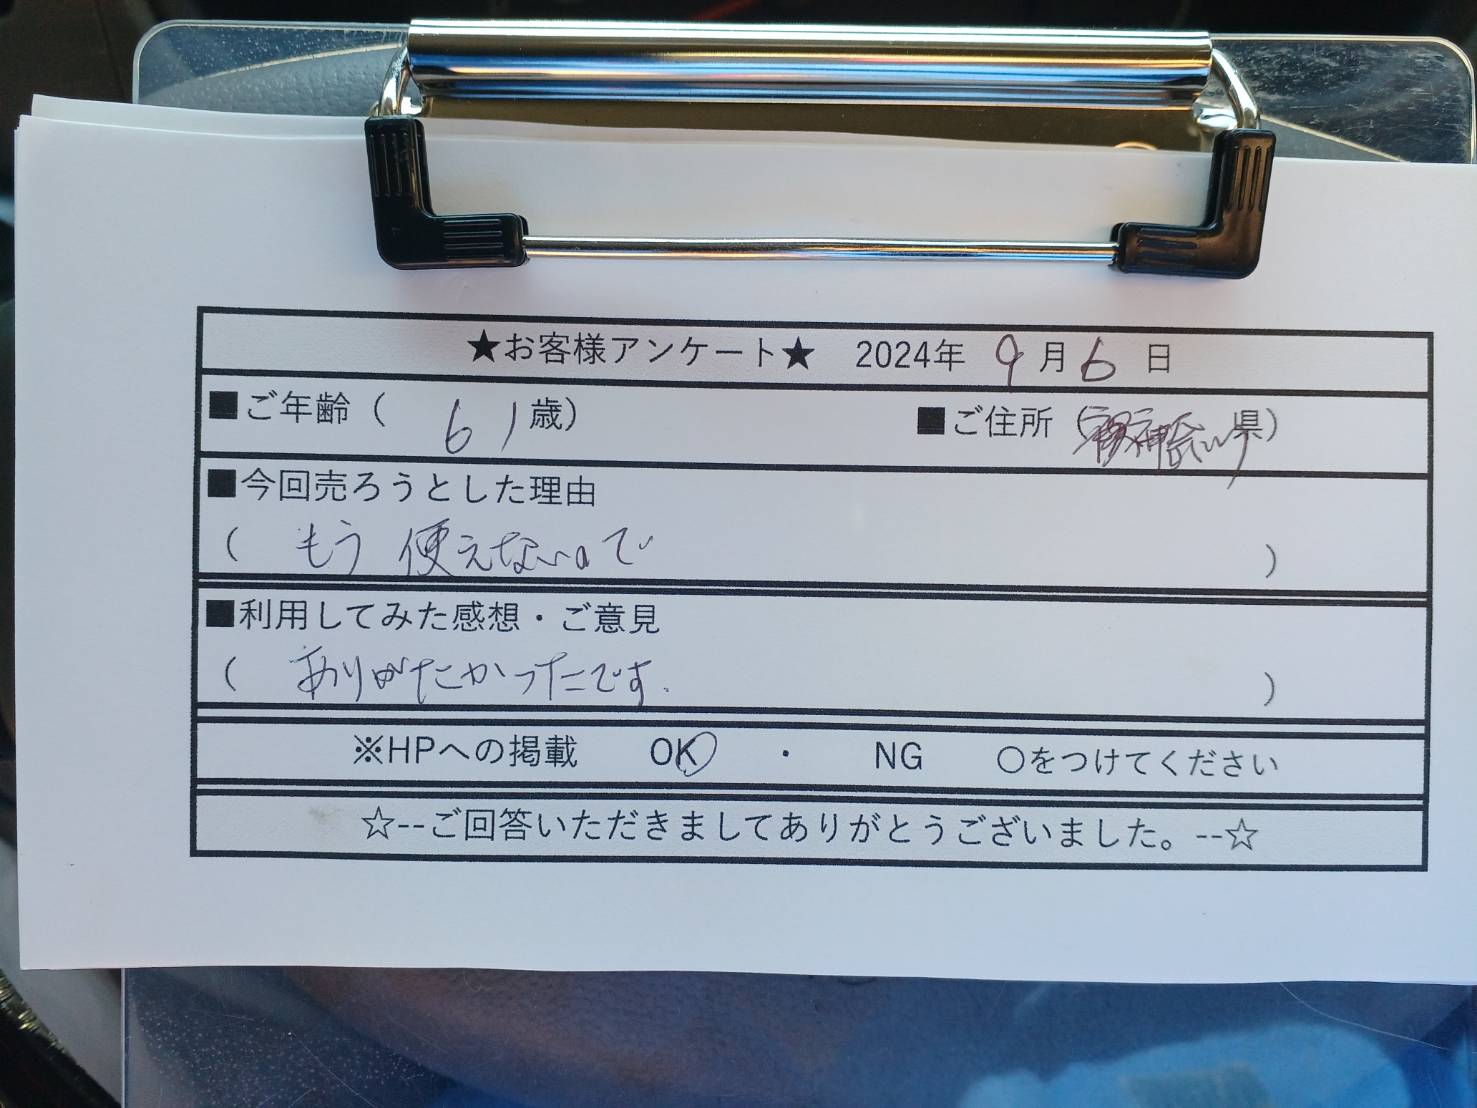 ★お客様アンケート★ 2024年 9月6日
■ご年齢（ 61歳） ■ご住所（神奈川県）
■今回売ろうとした理由
（ もう使えないので ）
■利用してみた感想・ご意見
（ ありがたかったです. ）
※HPへの掲載 OK ・ NG 〇をつけてください
☆--ご回答いただきましてありがとうございました。--☆